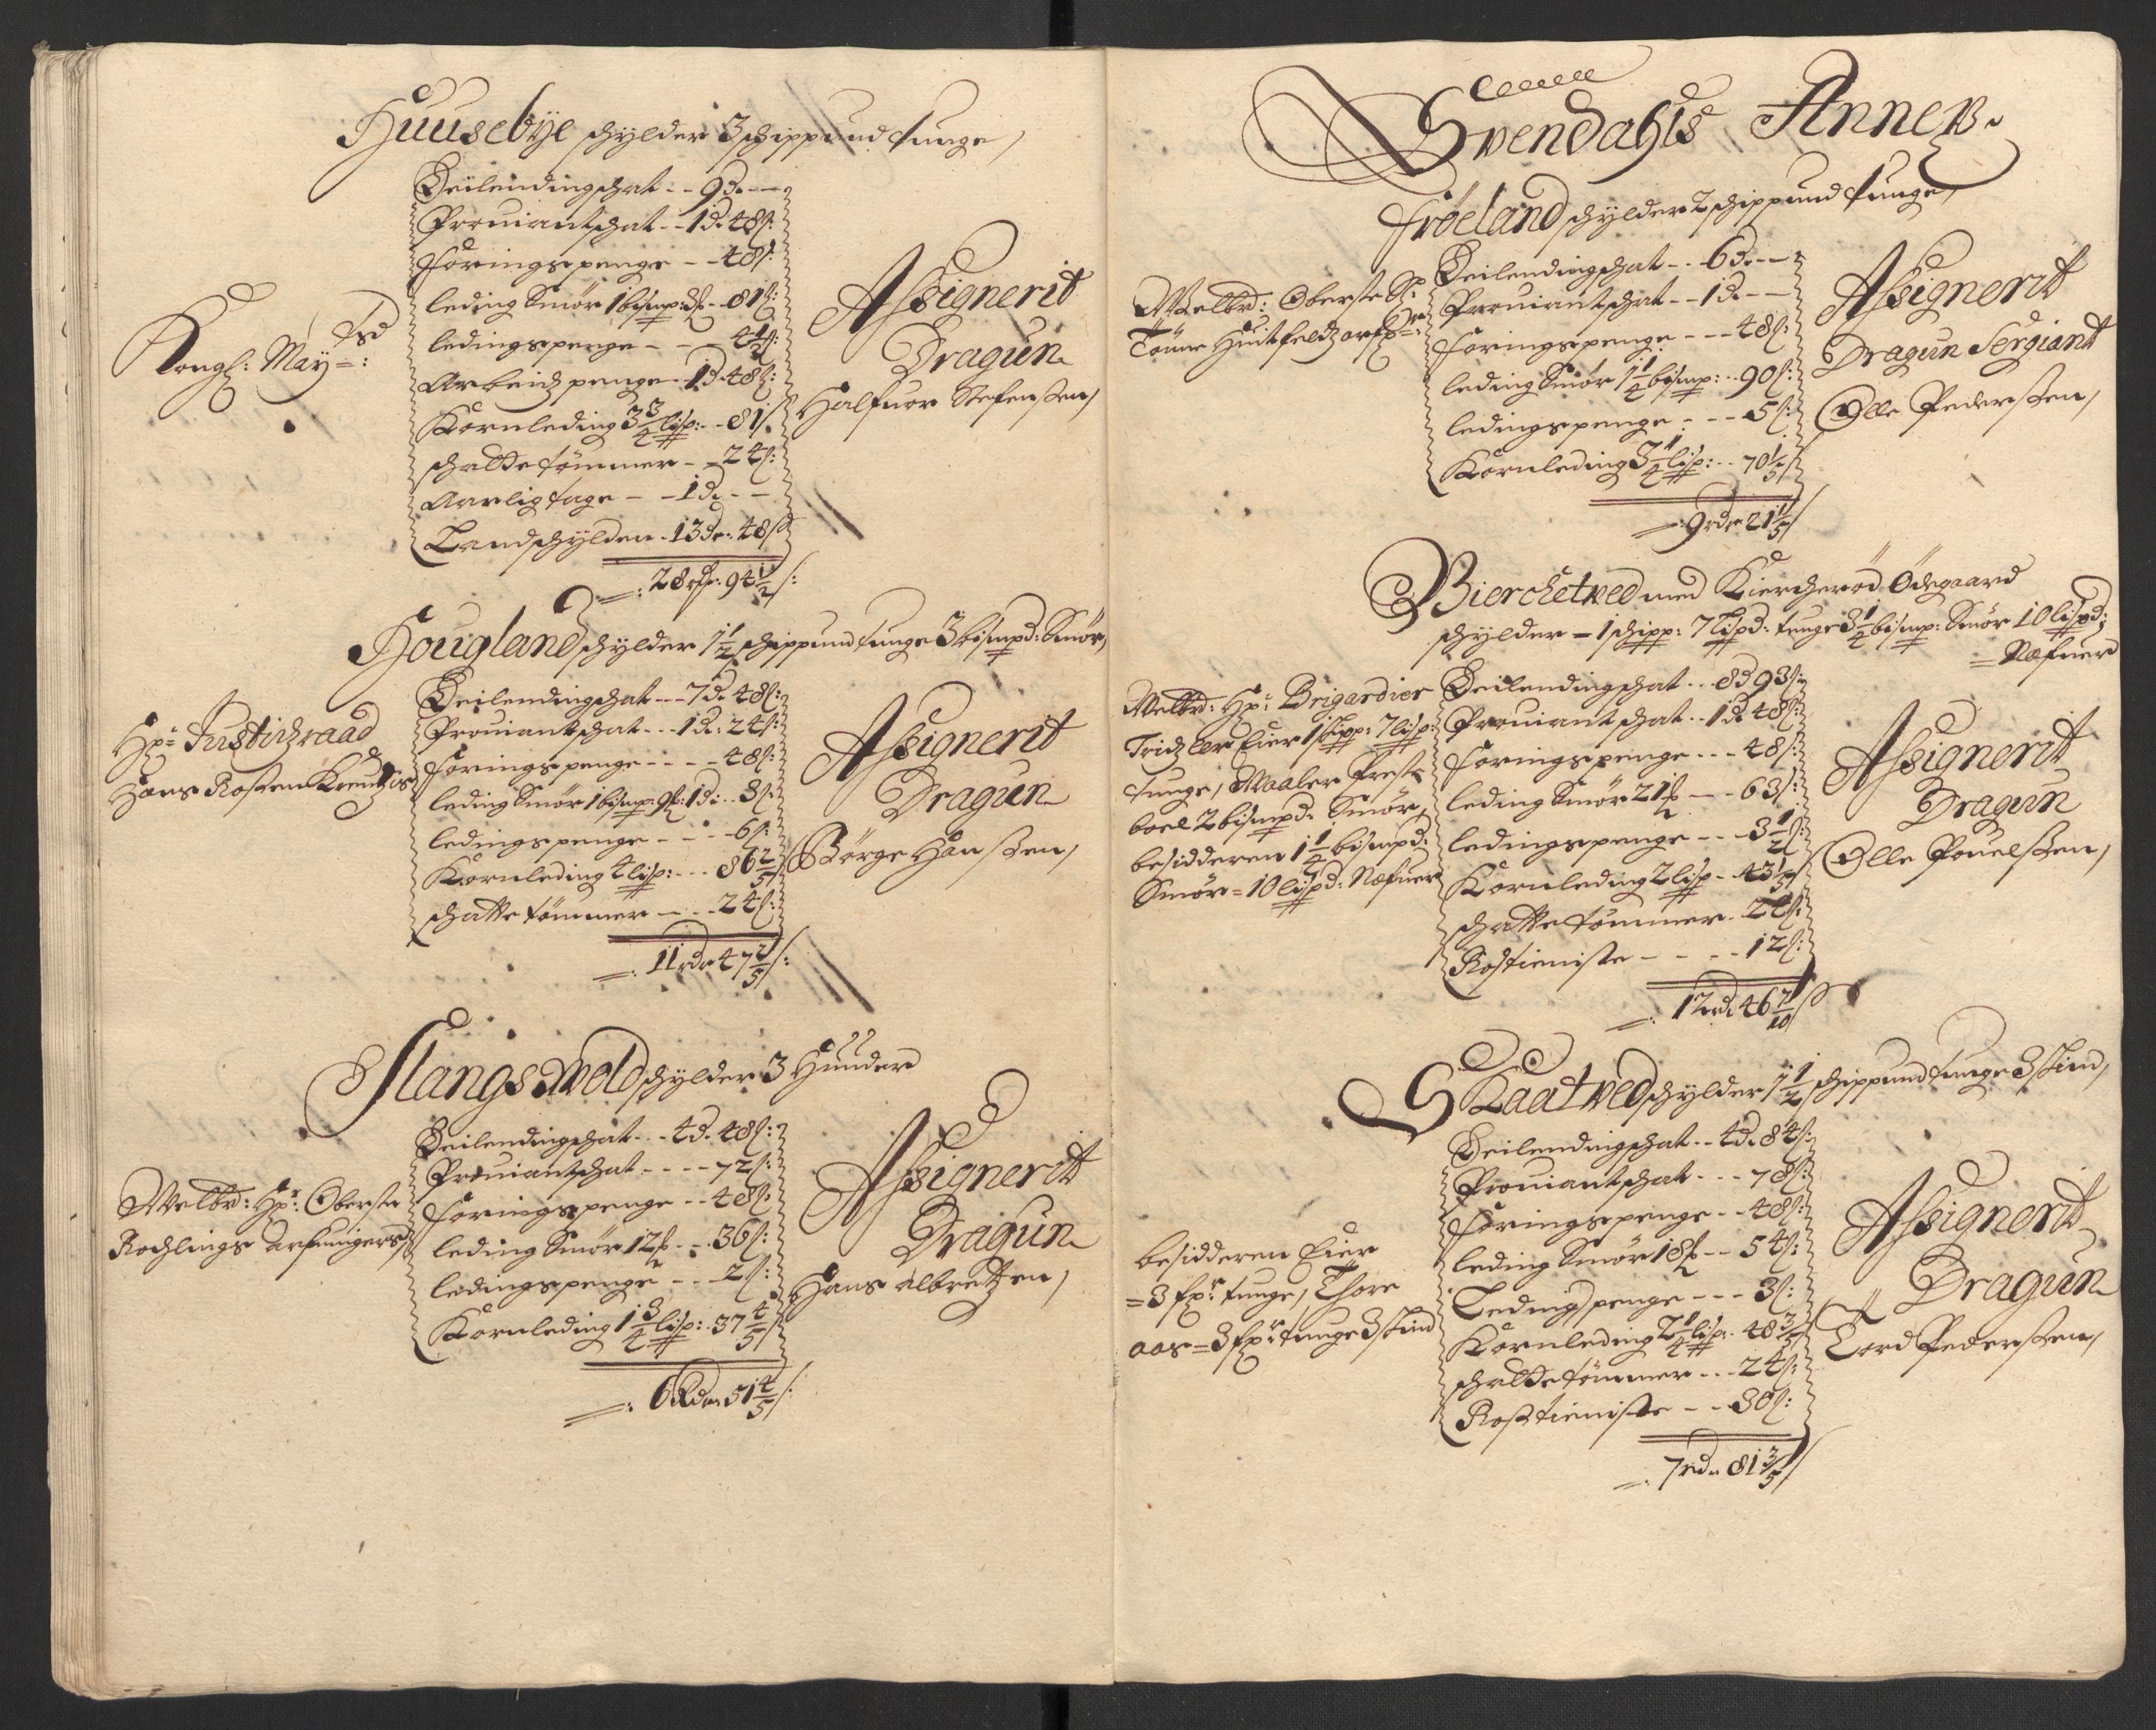 Huusebÿe schylder 3 schippund tunge,
Kongl: Maÿ=tz:
Leilendingschat - - 9 d. - -
Prouiantschat - - 1 d. 48 s:
Foringspenge - - 48 s:
leding Smör 1 bismp: 3 f - - 81 s:
ledingspenge - - - 4 1/2 s:
Arbeidz penge - 1 d. 48 s:
Kornleding 3 3/4 lisp: - - 81 s
schatte tømmer - - 24 s:
Aarlig tage - - 1 d. - -
Landschylden - 13 dr: 48 s
=: 28 rdr. 94 1/2 s:
Assignerit
Dragun
Halfuor Stefensen,
Hougland schylder 1 1/2 schippund tunge 3 bismpd: Smör,
Hr: Justitzraad
Hans Rosenkreutzis
Leilendingschat - - - 7 d. 48 s:
Prouiantschat - - - 1 d: 24 s:
Foringspenge - - - - 48 s:
leding Smör 1 bismp: 9 f: 1 d: - - 3 s:
ledingspenge - - - - 6 s:
Kornleding 4 lisp: - - - 86 2/5 s
schatte tømmer - - - 24 s:
=: 11 rdr 47 2/5 s:
Assignerit
Dragun
Börge Hansen,
Slangswold schylder 3 Hunder
Welbr: Hr: Oberste
Rochlings arfuingers
Leilendingschat - - - 4 d. 48 s:
Prouiantschat - - - - 72 s:
Foringspenge - - 48 s:
leding Smör 12 f - - 36 s:
ledingspenge - - 2 s:
Kornleding 1 3/4 lisp: - 37 4/5 s
=: 6 Rdr 51 4/5 s:
Assignerit
Dragun
Hans Albretzen,
Svendahls Annex.
Fröeland schylder 2 schippund tunge,
Welbr: Oberste Sr:
Tönne Huitfeldz arfr=:
Leilendingschat - - 6 d. - -
Prouiantschat - - 1 d. - -
Foringspenge - - - 48 s:
leding Smör 1 1/4 bismp: - - 90 s:
ledingspenge - - - 5 s:
Kornleding 3 1/4 lisp: - - 70 1/5 s
=: 9 rdr 21 1/5 s
Assignerit
Dragun Sergiant
Olle Pedersen,
Bierchetued med Kircheröd Ödegaard
schylder - 1 schipp: 7 lispd: tunge 3 1/4 bismp: Smör 10 lispd:
= Nefuer
Welbr: Hr: Brigardier
Tritzler Eier 1 schipp: 7 lisp:
tunge, Waaler Prest
boel 2 bismpd: Smör,
besidderen 1 1/4 bismpd:
Smör = 10 lispd: Nefuer
Leilendingschat - - 8 d 93 s:
Prouiantschat - - 1 d. 48 s:
Foringspenge - - - 48 s:
leding Smör 21 f - - - 63 s:
ledingspenge - - - 3 1/2 s:
Kornleding 2 lisp - 43 1/5 s
schatte tømmer - 24 s:
Rostieniste - - - - 12 s:
=: 12 rd. 46 7/10 s
Assignerit
Dragun
Olle Pouelsen,
Skaatued schylder 1 1/2 schippund tunge 3 skind,
besidderen Eier
= 3 fxr: tunge, Thore
aas = 3 fxr: tunge 3 skind
Leilendingschat - - 4 d. 84 s:
Prouiantschat - - - 78 s:
Foringspenge - - 48 s:
leding Smör 18 f - - 54 s:
Ledingspenge - - - 3 s:
Kornleding 2 1/4 lisp: - 48 3/5 s
schatte tømmer - - - 24 s:
Rostieniste - - - 30 s:
=: 7 rdr 81 3/5 s
Assignerit
Dragun
Tord Pedersen,